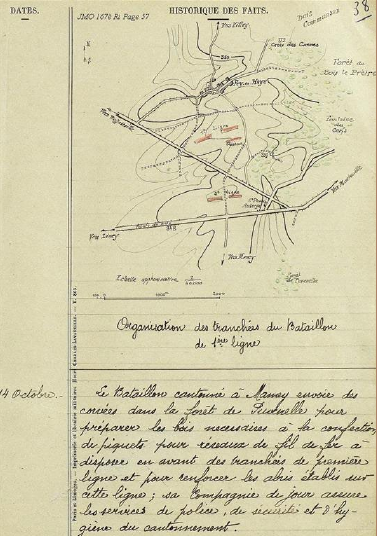 DATES.
HISTORIQUE DES FAITS.
38
JMO 167e RI Page 57
Bois Communaux
Croix des Carmes
Forêt du
Bois le Prêtre
Fey-en-Haye
Fontaine
Forêt
de Puvenelle
Echelle approximative
Organisation des tranchées du Bataillon
de 1ère ligne
14 Octobre.-
Le Bataillon cantonné à Mamey envoie des
corvées dans la forêt de Puvenelle pour
préparer les bois nécessaires à la confection
de piquets pour réseaux de fil de fer à
disposer en avant des tranchées de première
ligne et pour renforcer les abris établis sur
cette ligne ; sa Compagnie de jour assure
les services de police, de sécurité et d'hy-
giène du cantonnement.